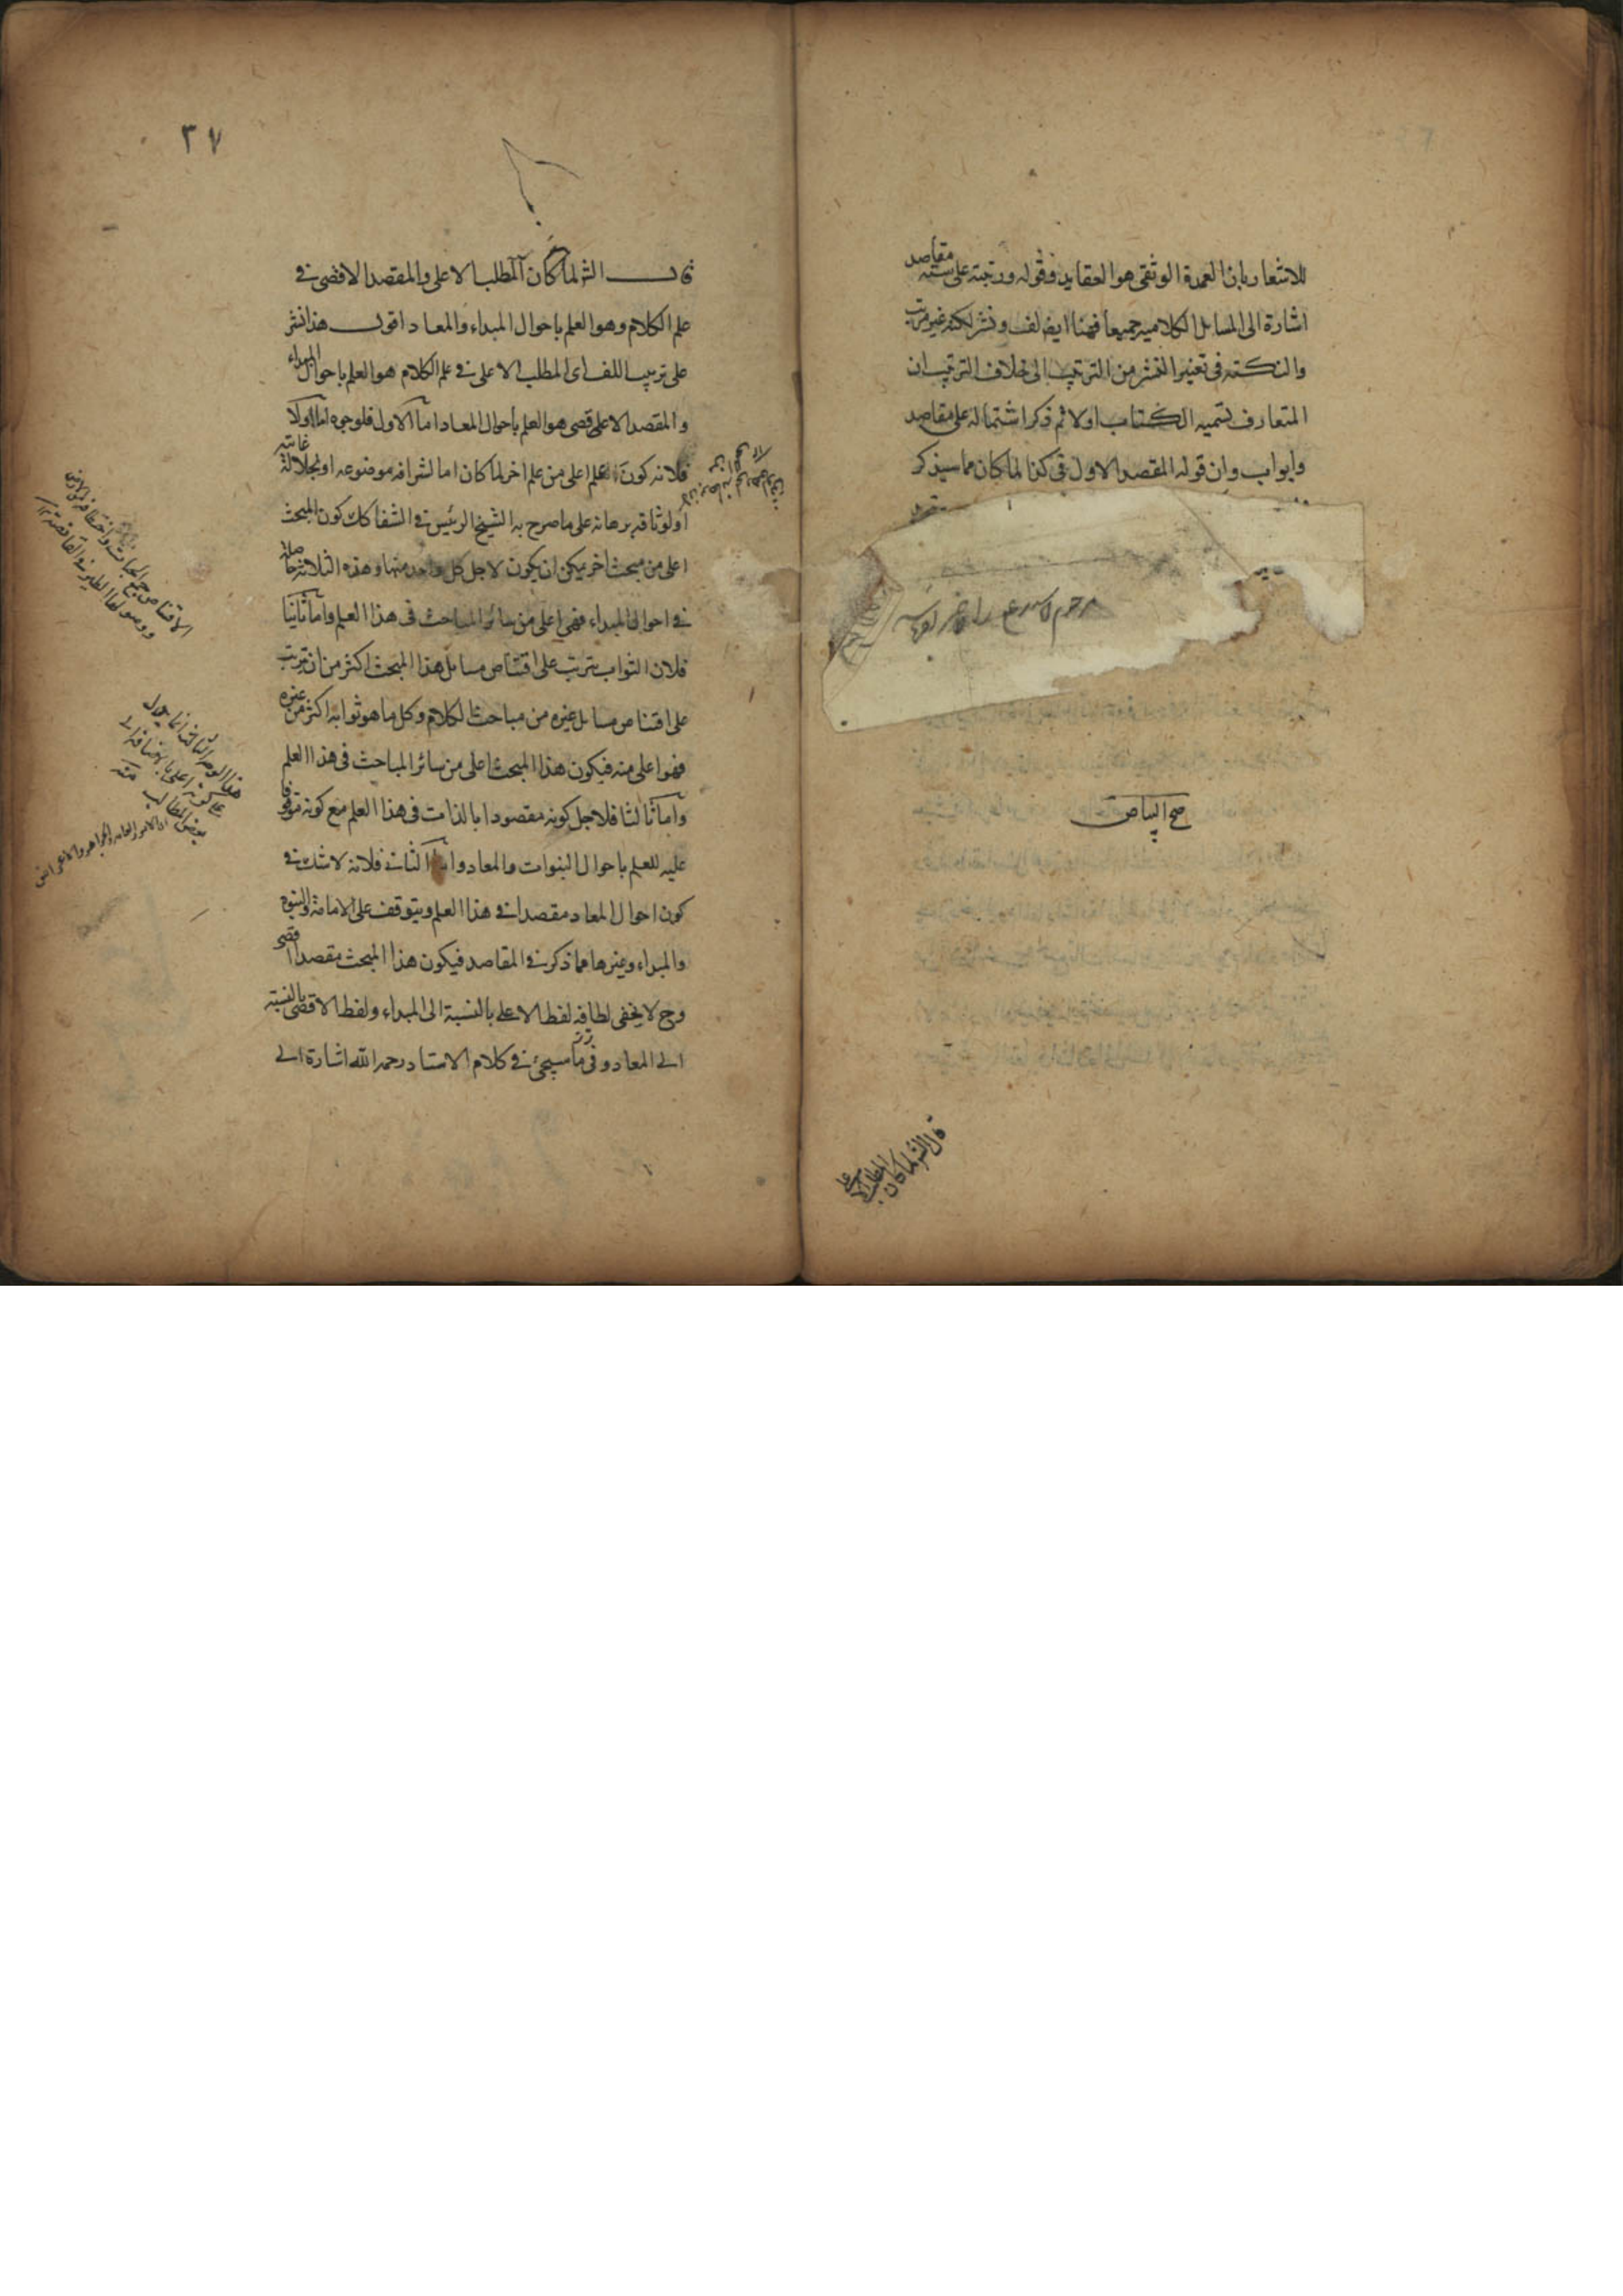 للاشعار بان العمدة الوثقى هو العقايد وقوله ورتبته على ستة مقاصد
اشارة الى المسايل الكلاميه جميعا فههنا ايضا لف ونشر لكنه غير مرتب
والنكتة فى تغيير النشر من الترتيب الى خلاف الترتيب ان
المتعارف تسميه الكتاب اولا ثم ذكر اشتماله على مقاصد
وابواب وان قوله المقصد الاول فى كذا لما كان مما سيذكر
صح البياض
قال الش لما كان
المطلب الا على
٣٧
قال الش لما كان المطلب الاعلى والمقصد الاقصى فى
علم الكلام وهو العلم باحوال المبداء والمعاد اقول هذا نشر
على ترتيب اللف اى المطلب الاعلى فى علم الكلام هو العلم باحوال المبداء
والمقصد الاعلى قصى هو العلم باحوال المعاد اما الاول فلوجوه اما اولا
فلانه كون علم اعلى من علم اخر لما كان اما لشرافه موضوعه او لجلالة غايته
او لوثاقه برهانه على ما صرح به الشيخ الرئيس فى الشفا كك كون المبحث
اعلى من مبحث اخر يمكن ان يكون لاجل كل واحد منها وهذه الثلاثة حاصلة
فى احوال المبداء فهى اعلى من سائر المباحث فى هذا العلم واما ثانيا
فلان الثواب يترتب على اقتناص مسايل هذا المبحث اكثر من ان يترتب
على اقتناص مسايل غيره من مباحث الكلام وكل ما هو ثوابه اكثر من غيره
فهو اعلى منه فيكون هذا المبحث اعلى من سائر المباحث فى هذا العلم
واما ثالثا فلاجل كونه مقصودا بالذات فى هذا العلم مع كونه موقوفا
عليه للعلم باحوال النبوات والمعاد واما الثانى فلانه لا شك فى
كون احوال المعاد مقصدا فى هذا العلم ويتوقف على الامامة والنبوة
والمبداء وغيرها مما ذكر فى المقاصد فيكون هذا المبحث مقصدا اقصى
وح لا يخفى لطافه لفظ الاعلى بالنسبة الى المبداء ولفظ الاقصى بالنسبة
الى المعاد وفى ما سيجئ فى كلام الاستاد رحمه الله اشارة الى
هذا الوجه الثالث انما يدل
على كونه اعلى بالاضافة الى
بعض المطالب منه